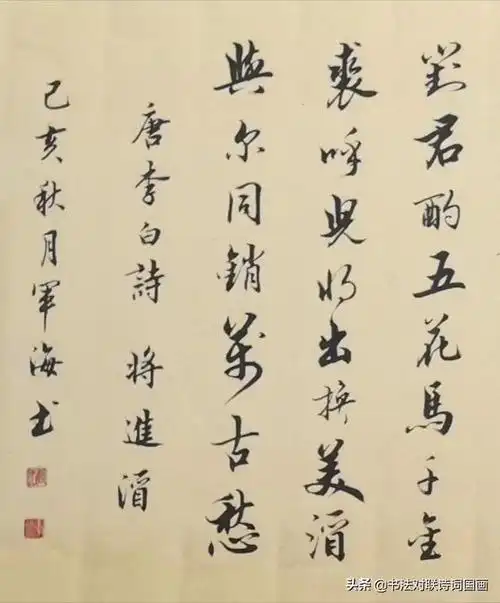 對君酌五花馬千金
裘呼兒將出換美酒
與尔同銷萬古愁
唐李白詩 將進酒
己亥秋月軍海书
头条 @书法对联诗词国画